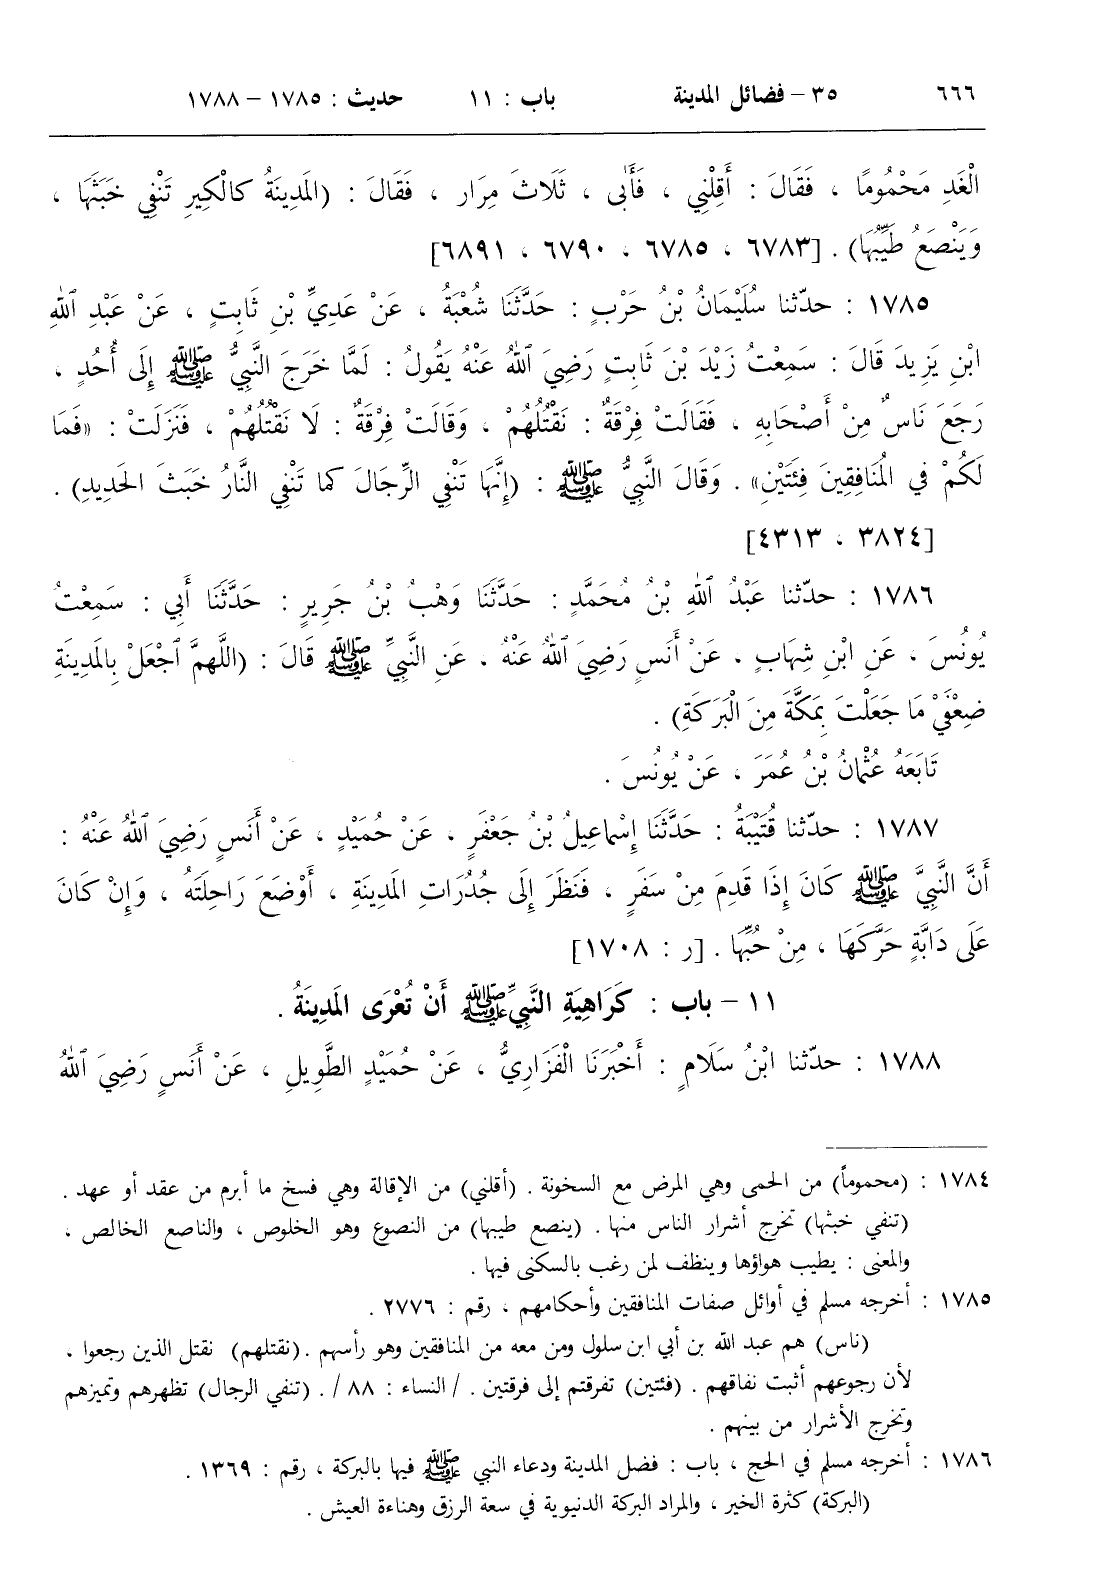 ٦٦٦ ٣٥ – فضائل المدينة باب : ١١ حديث : ١٧٨٥ – ١٧٨٨
الْغَدِ مَحْمُومًا ، فَقَالَ : أَقِلْنِي ، فَأَبَى ، ثَلَاثَ مِرَارٍ ، فَقَالَ : (المَدِينَةُ كالْكِيرِ تَنْفِي خَبَثَهَا ،
وَيَنْصَعُ طَيِّبُهَا) . [٦٧٨٣ ، ٦٧٨٥ ، ٦٧٩٠ ، ٦٨٩١]
١٧٨٥ : حدّثنا سُلَيْمَانُ بْنُ حَرْبٍ : حَدَّثَنَا شُعْبَةُ ، عَنْ عَدِيِّ بْنِ ثَابِتٍ ، عَنْ عَبْدِ ٱللهِ
ابْنِ يَزِيدَ قَالَ : سَمِعْتُ زَيْدَ بْنَ ثَابِتٍ رَضِيَ ٱللهُ عَنْهُ يَقُولُ : لَمَّا خَرَجَ النَّبِيُّ ﷺ إِلَى أُحُدٍ ،
رَجَعَ نَاسٌ مِنْ أَصْحَابِهِ ، فَقَالَتْ فِرْقَةٌ : نَقْتُلُهُمْ ، وَقَالَتْ فِرْقَةٌ : لَا نَقْتُلُهُمْ ، فَنَزَلَتْ : «فَمَا
لَكُمْ في المُنَافِقِينَ فِئَتَيْنِ» . وَقَالَ النَّبِيُّ ﷺ : (إِنَّهَا تَنْفِي الرِّجَالَ كما تَنْفِي النَّارُ خَبَثَ الحَدِيدِ) .
[٣٨٢٤ ، ٤٣١٣]
١٧٨٦ : حدّثنا عَبْدُ ٱللهِ بْنُ مُحَمَّدٍ : حَدَّثَنَا وَهْبُ بْنُ جَرِيرٍ : حَدَّثَنَا أَبِي : سَمِعْتُ
يُونُسَ ، عَنِ ابْنِ شِهَابٍ ، عَنْ أَنَسٍ رَضِيَ ٱللهُ عَنْهُ ، عَنِ النَّبِيِّ ﷺ قَالَ : (اللَّهُمَّ ٱجْعَلْ بِالمَدِينَةِ
ضِعْفَيْ مَا جَعَلْتَ بِمَكَّةَ مِنَ الْبَرَكَةِ) .
تَابَعَهُ عُثْمَانُ بْنُ عُمَرَ ، عَنْ يُونُسَ .
١٧٨٧ : حدّثنا قُتَيْبَةُ : حَدَّثَنَا إِسْمَاعِيلُ بْنُ جَعْفَرٍ ، عَنْ حُمَيْدٍ ، عَنْ أَنَسٍ رَضِيَ ٱللهُ عَنْهُ :
أَنَّ النَّبِيَّ ﷺ كَانَ إِذَا قَدِمَ مِنْ سَفَرٍ ، فَنَظَرَ إِلَى جُدُرَاتِ المَدِينَةِ ، أَوْضَعَ رَاحِلَتَهُ ، وَإِنْ كَانَ
عَلَى دَابَّةٍ حَرَّكَهَا ، مِنْ حُبِّهَا . [ر : ١٧٠٨]
١١ – باب : كَرَاهِيَةِ النَّبِيِّ ﷺ أَنْ تُعْرَى المَدِينَةُ .
١٧٨٨ : حدّثنا ابْنُ سَلَامٍ : أَخْبَرَنَا الْفَزَارِيُّ ، عَنْ حُمَيْدٍ الطَّوِيلِ ، عَنْ أَنَسٍ رَضِيَ ٱللهُ
١٧٨٤ : (محموماً) من الحمى وهي المرض مع السخونة . (أقلني) من الإقالة وهي فسخ ما أبرم من عقد أو عهد .
(تنفي خبثها) تخرج أشرار الناس منها . (ينصع طيبها) من النصوع وهو الخلوص ، والناصع الخالص ،
والمعنى : يطيب هواؤها وينظف لمن رغب بالسكنى فيها .
١٧٨٥ : أخرجه مسلم في أوائل صفات المنافقين وأحكامهم ، رقم : ٢٧٧٦ .
(ناس) هم عبد الله بن أبي ابن سلول ومن معه من المنافقين وهو رأسهم . (نقتلهم) نقتل الذين رجعوا ،
لأن رجوعهم أثبت نفاقهم . (فئتين) تفرقتم إلى فرقتين . / النساء : ٨٨ / . (تنفي الرجال) تظهرهم وتميزهم
وتخرج الأشرار من بينهم .
١٧٨٦ : أخرجه مسلم في الحج ، باب : فضل المدينة ودعاء النبي ﷺ فيها بالبركة ، رقم : ١٣٦٩ .
(البركة) كثرة الخير ، والمراد البركة الدنيوية في سعة الرزق وهناءة العيش .